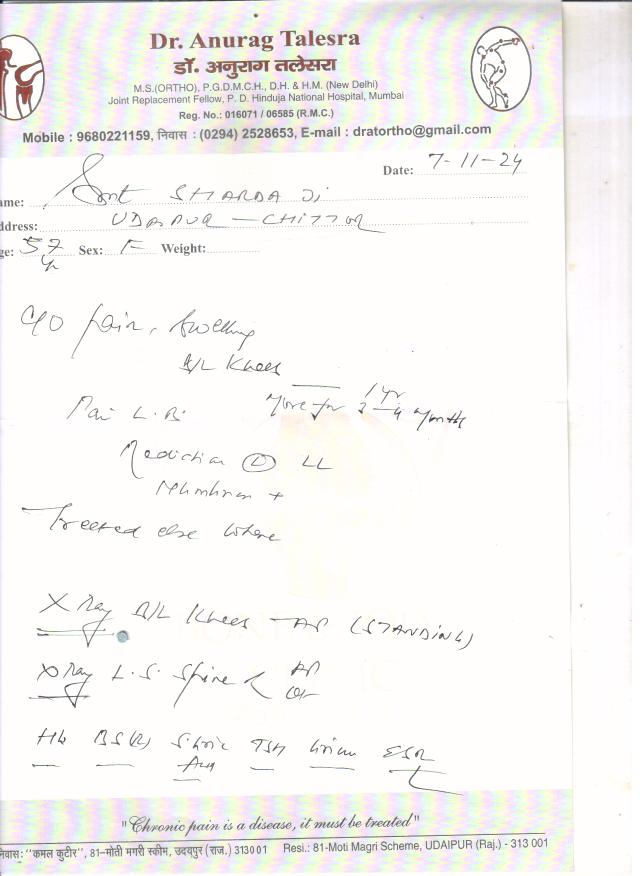 Dr. Anurag Talesra
डॉ. अनुराग तलेसरा
M.S.(ORTHO), P.G.D.M.C.H., D.H. & H.M. (New Delhi)
Joint Replacement Fellow, P. D. Hinduja National Hospital, Mumbai
Reg. No.: 016071 / 06585 (R.M.C.)
Mobile : 9680221159, निवास : (0294) 2528653, E-mail : dratortho@gmail.com
Date: 7-11-24
ame: Smt SHARDA Ji
ddress: UDAIPUR - CHITTOR
ge: 57 yr Sex: F Weight:
C/O Pain, Swelling
B/L Knees
1 yr
Pain L.B. More for 3-4 month
Radiation (L) LL
Numbness +
Treated else where
X Ray B/L Knees - AP (STANDING)
X Ray L.S. Spine < AP
Hb BS(R) S. Uric TSH ESR
Acid
"Chronic pain is a disease, it must be treated"
निवास: "कमल कुटीर", 81-मोती मगरी स्कीम, उदयपुर (राज.) 313001 Resi.: 81-Moti Magri Scheme, UDAIPUR (Raj.) - 313 001